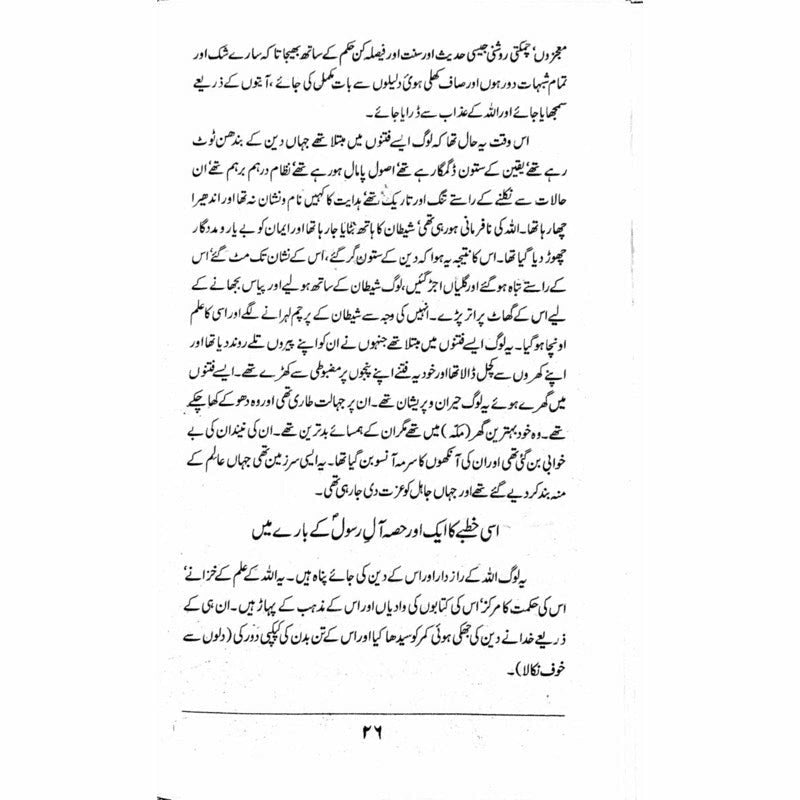 معجزوں‘ چمکتی روشنی جیسی حدیث اور سنت اور فیصلہ کن حکم کے ساتھ بھیجا تا کہ سارے شک اور
تمام شبہات دور ہوں اور صاف کھلی ہوئی دلیلوں سے بات مکمل کی جائے ، آیتوں کے ذریعے
سمجھایا جائے اور اللہ کے عذاب سے ڈرایا جائے۔
اس وقت یہ حال تھا کہ لوگ ایسے فتنوں میں مبتلا تھے جہاں دین کے بندھن ٹوٹ
رہے تھے‘ یقین کے ستون ڈگمگا رہے تھے‘ اصول پامال ہو رہے تھے‘ نظام درہم برہم تھے‘ ان
حالات سے نکلنے کے راستے تنگ اور تاریک تھے‘ ہدایت کا کہیں نام و نشان نہ تھا اور اندھیرا
چھا رہا تھا۔ اللہ کی نافرمانی ہو رہی تھی‘ شیطان کا ہاتھ بٹایا جا رہا تھا اور ایمان کو بے یار و مددگار
چھوڑ دیا گیا تھا۔ اس کا نتیجہ یہ ہوا کہ دین کے ستون گر گئے ، اُس کے نشان تک مٹ گئے‘ اس
کے راستے تباہ ہو گئے اور گلیاں اجڑ گئیں، لوگ شیطان کے ساتھ ہو لیے اور پیاس بجھانے کے
لیے اس کے گھاٹ پر اتر پڑے۔ انہیں کی وجہ سے شیطان کے پرچم لہرانے لگے اور اسی کا علم
اونچا ہو گیا۔ یہ لوگ ایسے فتنوں میں مبتلا تھے جنہوں نے ان کو اپنے پیروں تلے روند دیا تھا اور
اپنے کھروں سے کچل ڈالا تھا اور خود یہ فتنے اپنے پنجوں پر مضبوطی سے کھڑے تھے۔ ایسے فتنوں
میں گھرے ہوئے یہ لوگ حیران و پریشان تھے۔ ان پر جہالت طاری تھی اور وہ دھوکے کھا چکے
تھے۔ وہ خود بہترین گھر (مکہ) میں تھے مگر ان کے ہمسائے بدترین تھے۔ ان کی نیند ان کی بے
خوابی بن گئی تھی اور ان کی آنکھوں کا سرمہ آنسو بن گیا تھا۔ یہ ایسی سرزمین تھی جہاں عالم کے
منہ بند کر دیے گئے تھے اور جہاں جاہل کو عزت دی جا رہی تھی۔
اسی خطبے کا ایک اور حصہ آلِ رسولؐ کے بارے میں
یہ لوگ اللہ کے رازدار اور اس کے دین کی جائے پناہ ہیں۔ یہ اللہ کے علم کے خزانے‘
اس کی حکمت کا مرکز‘ اس کی کتابوں کی وادیاں اور اس کے مذہب کے پہاڑ ہیں۔ ان ہی کے
ذریعے خدا نے دین کی جھکی ہوئی کمر کو سیدھا کیا اور اس کے تن بدن کی کپکپی دُور کی (دلوں سے
خوف نکالا)۔
۲۶